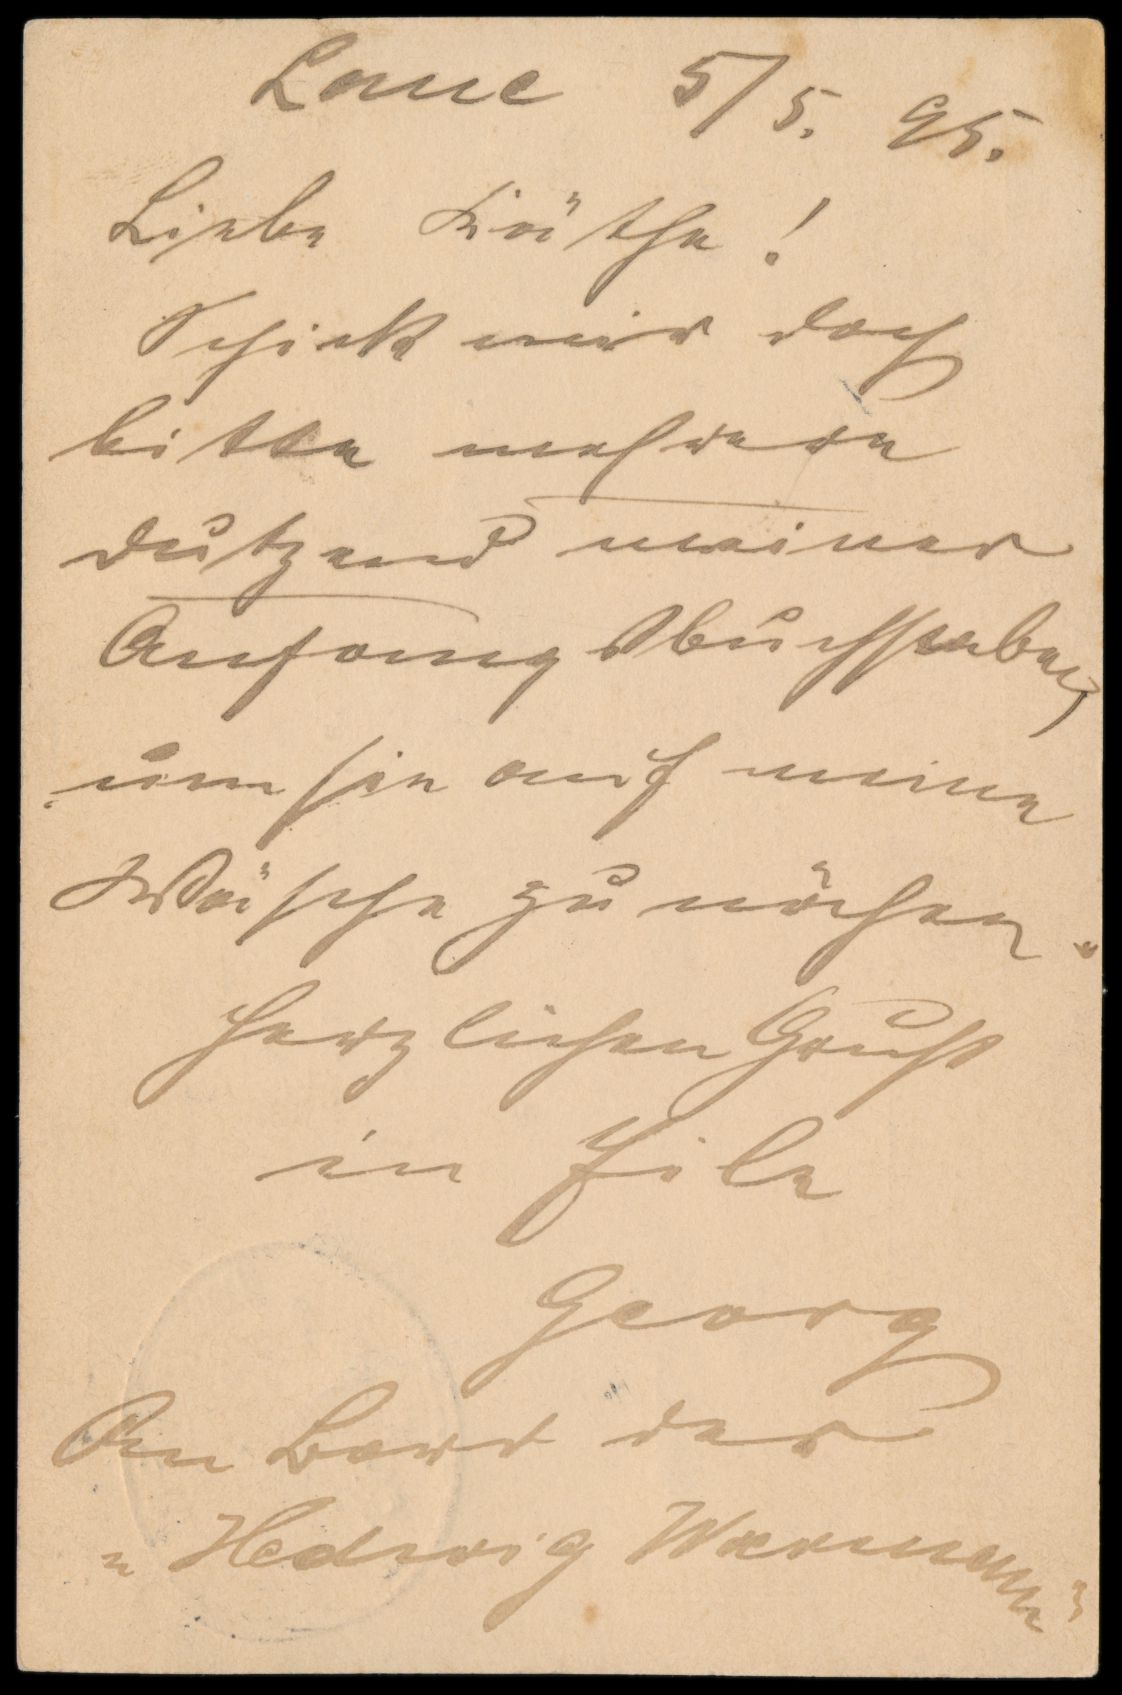 Laue 5/5. 95.
Liebe Käthe!
Schicke mir doch
bitte mehrere
Dutzend meiner
Anfangsbuchstaben,
um sie auf meine
Wäsche zu nähen.
Herzlichen Gruß
in Eile
Georg
An Bord der
"Hedwig Warmann"